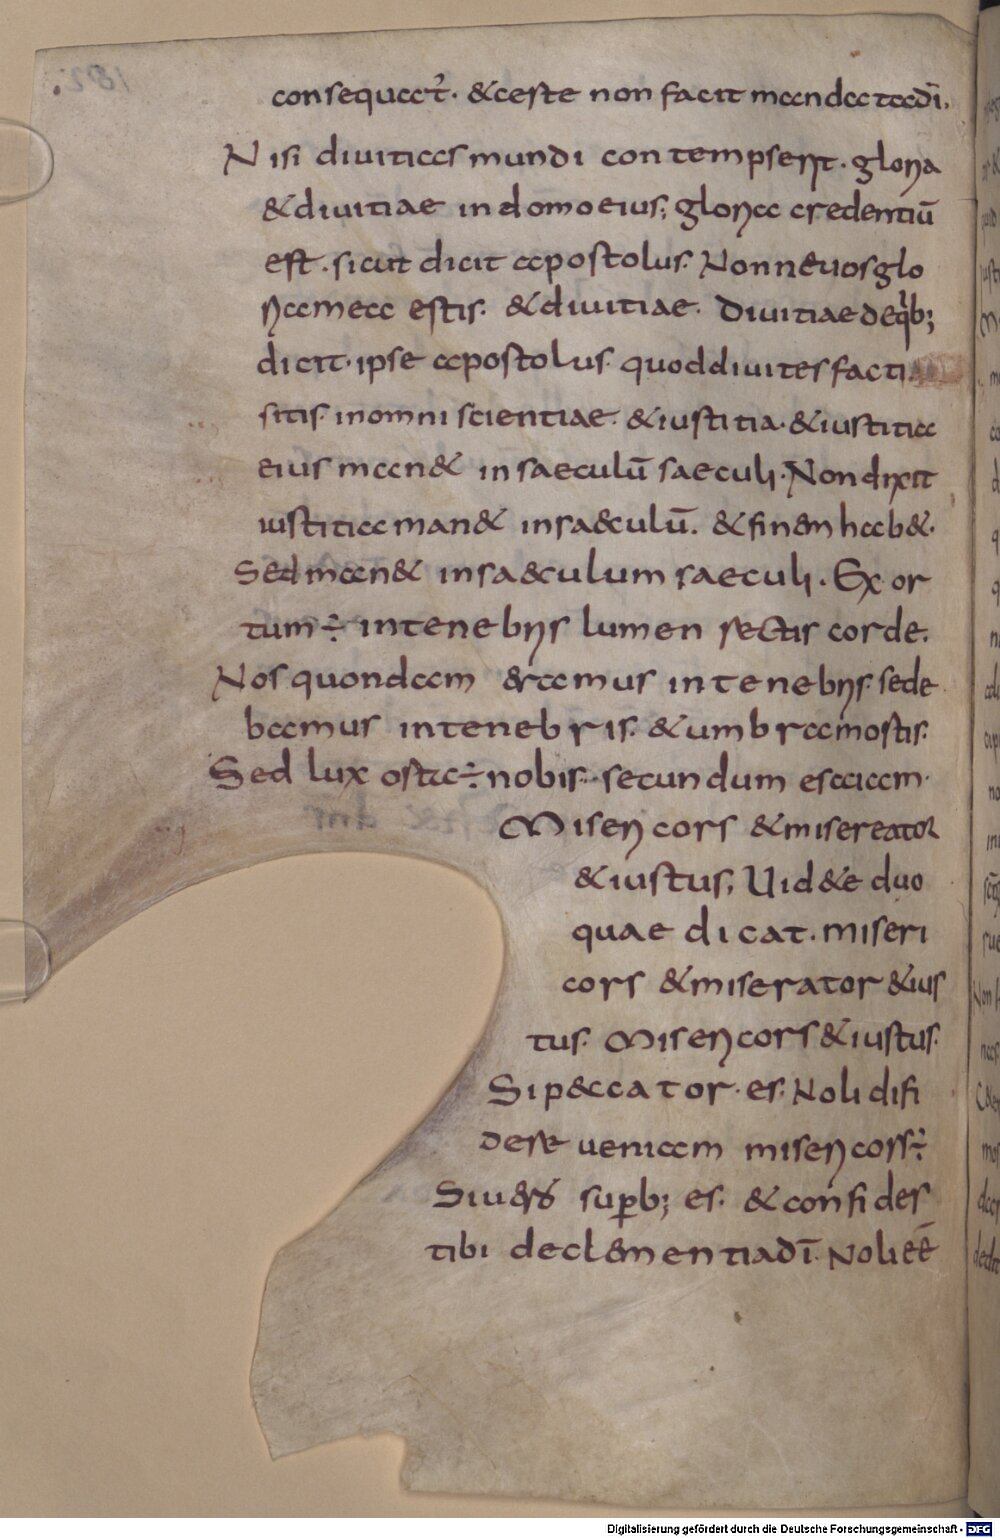 consequat̉. & cęste non facit mandatadī.
Nisi diuitias mundi contempserit. gloria
& diuitiae in domo eius; gloria credentiū
est. sicut dicit apostolus. Nonne uos glo
ria mea estis. & diuitiae. Diuitiae de qͥb;
dicit. ipse apostolus. quod diuites facti
sitis. in omni scientiae. & iustitia. & iustitia
eius man& in saeculū saeculi. Non dixit
iustitia man& in saeculū. & finem hab&.
Sed man& in saeculum saeculi. Ex or
tum ÷ in tenebris lumen rectis corde.
Nos quondam eramus in tenebris. sede
bamus in tenebris. & umbra mortis.
Sed lux orta ÷ nobis. secundum esaiam.
Misericors & misereator
& iustus; Uid&e duo
quae dicat. miseri
cors & miserator & ius
tus. Misericors & iustus.
Si peccator. es. Noli diffi
dere ueniam misericors ÷
Si uero superb; es. & confides
tibi de clementia dī. Noli eē
182
Digitalisierung gefördert durch die Deutsche Forschungsgemeinschaft - DFG